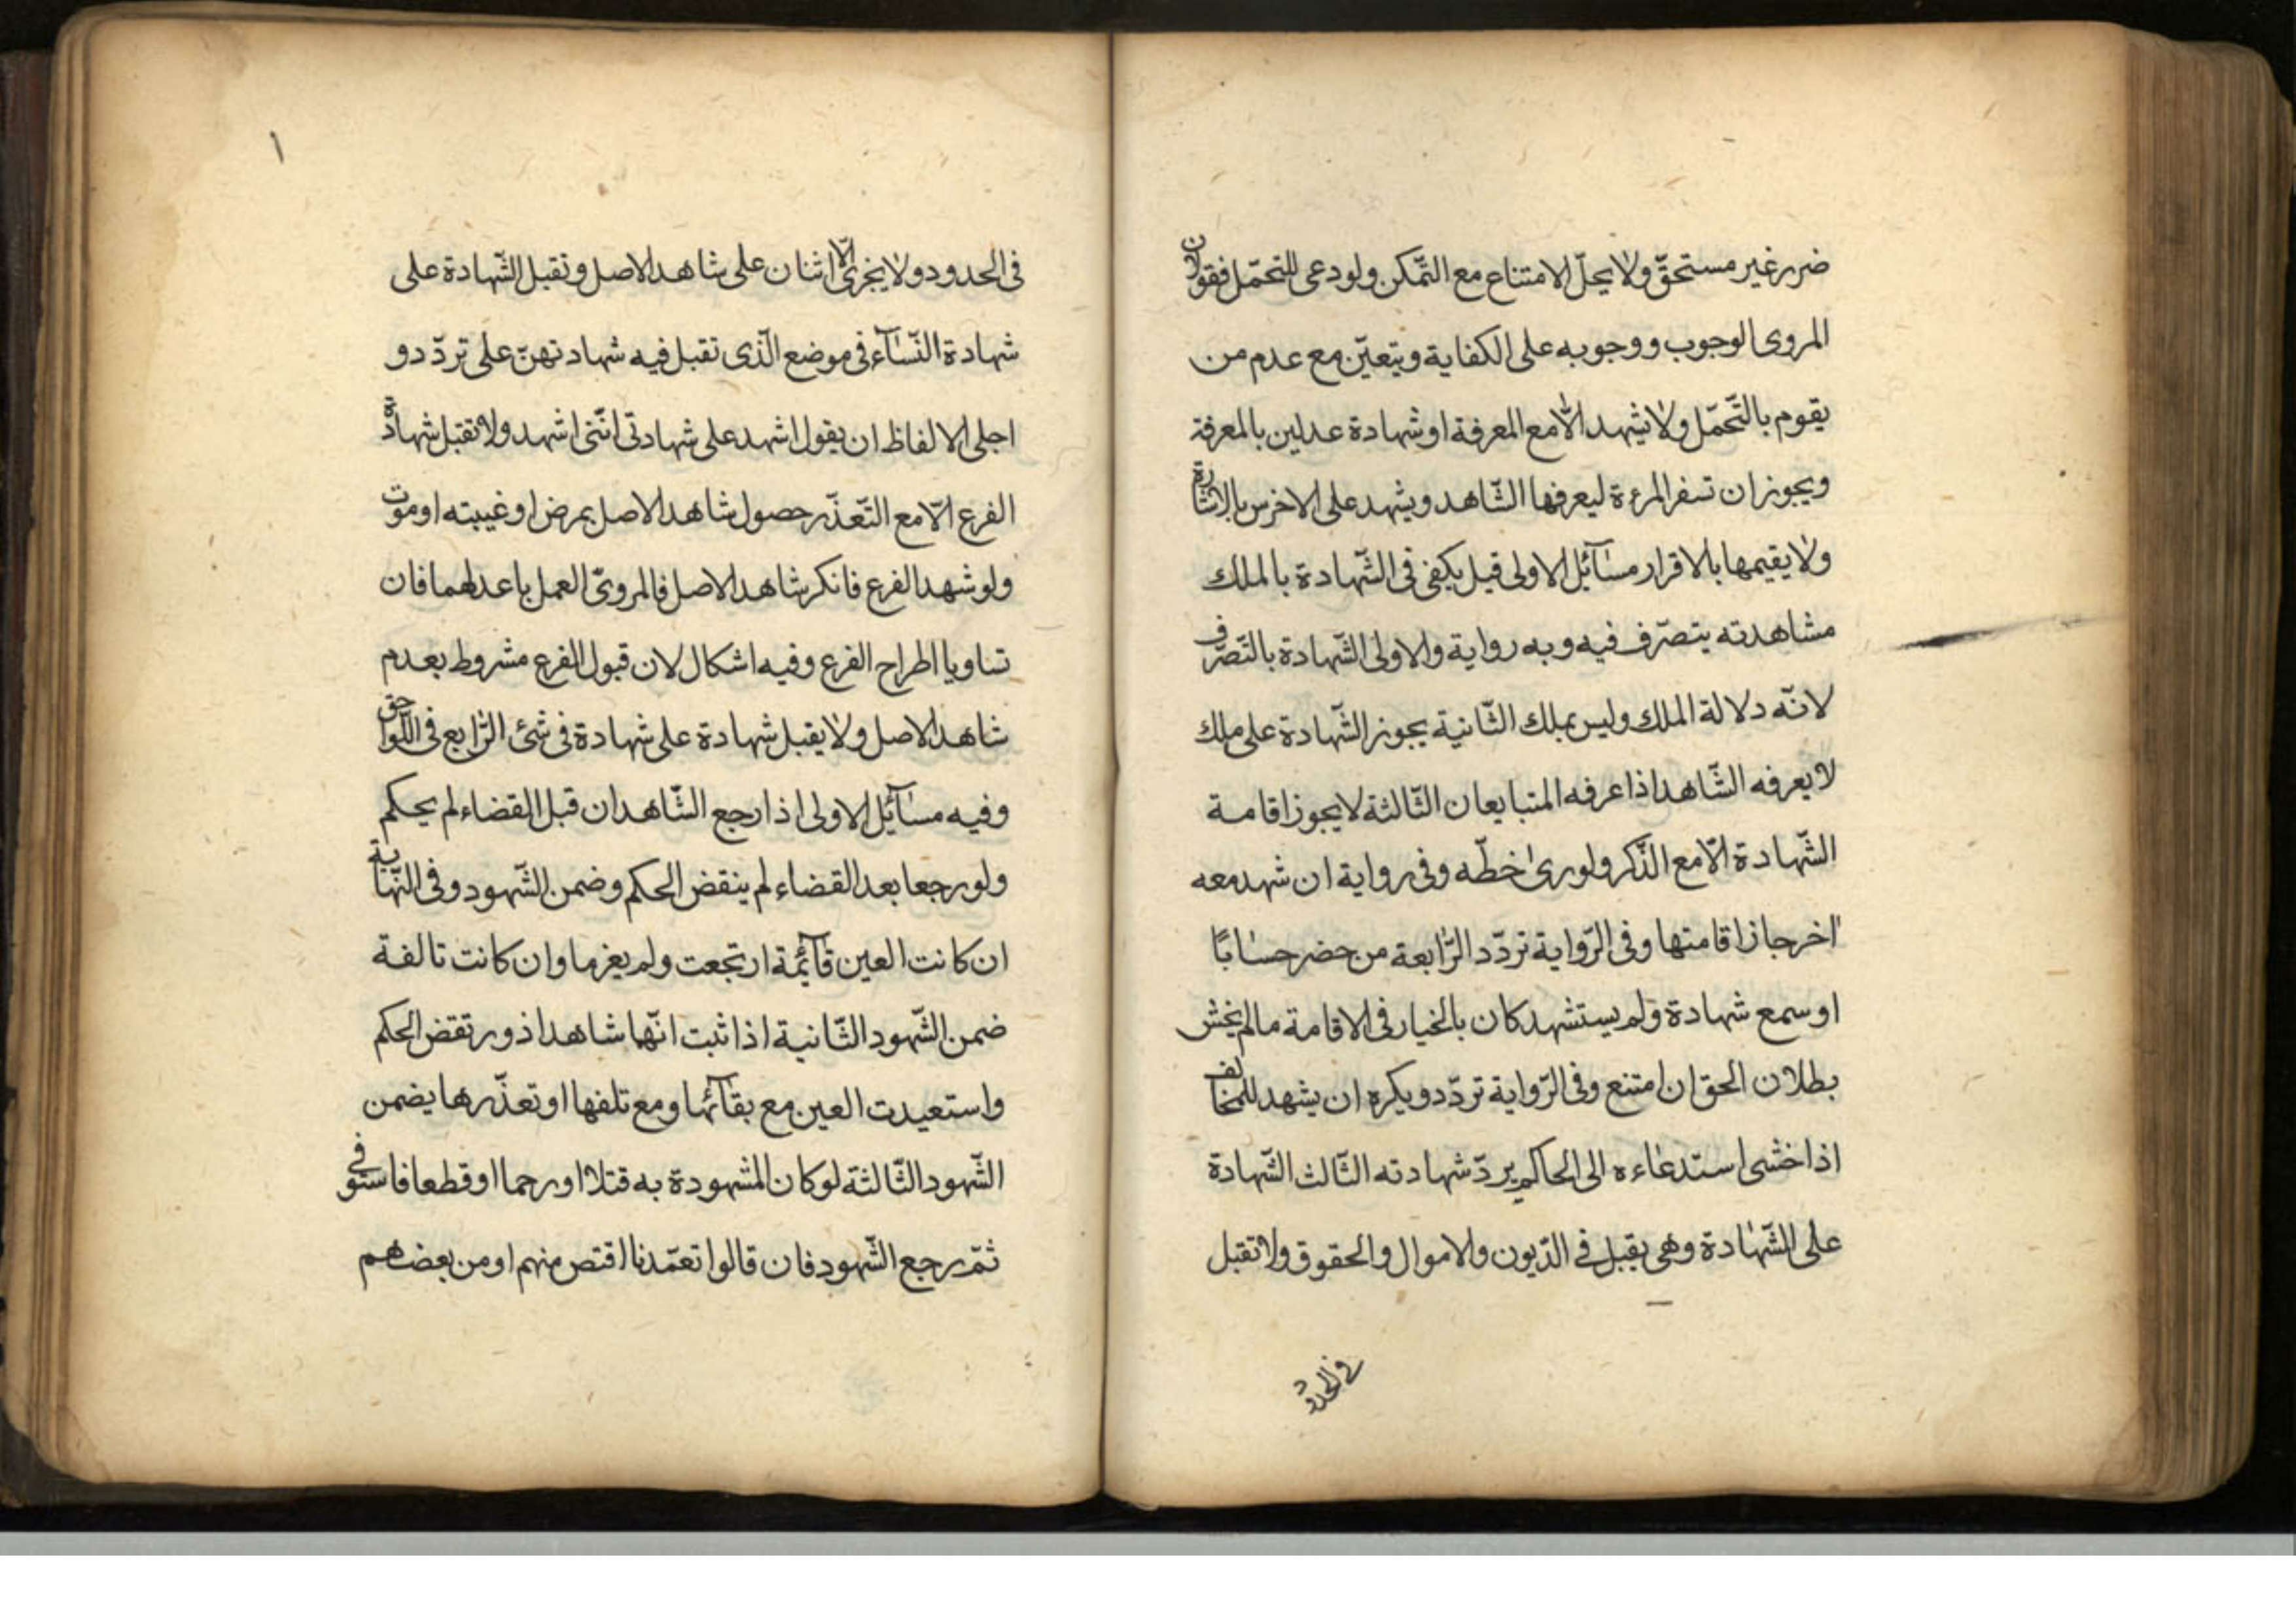 ضرر غير مستحقّ ولا يحلّ الامتناع مع التّمكن ولو دعى للتحمّل فقولان
المروى الوجوب ووجوبه على الكفاية ويتعيّن مع عدم من
يقوم بالتّحمّل ولا يشهد الّا مع المعرفة او شهادة عدلين بالمعرفة
ويجوز ان تسفر المرءة ليعرفها الشّاهد ويشهد على الاخرس بالاشارة
ولا يقيمها بالاقرار مسآئل الاولى قيل يكفى فى الشّهادة بالملك
مشاهدته يتصرّف فيه وبه رواية والاولى الشّهادة بالتّصرّف
لانّه دلالة الملك وليس بملك الثّانية يجوز الشّهادة على ملك
لا يعرفه الشّاهد اذا عرفه المتبايعان الثّالثة لا يجوز اقامة
الشّهادة الّا مع الذّكر ولو رىٰ خطّه وفى رواية ان شهد معه
اخر جاز اقامتها وفى الرّواية تردّد الرّابعة من حضر حسابًا
او سمع شهادة ولم يستشهد كان بالخيار فى الاقامة مالم يخش
بطلان الحق ان امتنع وفى الرّواية تردّد ويكره ان يشهد للمخالف
اذا خشى استدعاءه الى الحاكم يردّ شهادته الثّالث الشّهادة
على الشّهادة وهى يقبل فى الدّيون والاموال والحقوق ولا تقبل
فى الحدود
١
فى الحدود ولا يخرى الّا اثنان على شاهد الاصل وتقبل الشّهادة على
شهادة النّسآء فى موضع الّذى تقبل فيه شهادتهنّ على تردّد و
اجلى الالفاظ ان يقول اشهد على شهادتى انّنى اشهد ولا تقبل شهادة
الفرع الّا مع التّعذّر حصول شاهد الاصل بمرض او غيبته او موت
ولو شهد الفرع فانكر شاهد الاصل فالمروىّ العمل باعدلهما فان
تساويا اطراح الفرع وفيه اشكال لان قبول الفرع مشروط بعدم
شاهد الاصل ولا يقبل شهادة على شهادة فى شئ الرّابع فى اللّواحق
وفيه مسآئل الاولى اذا رجع الشّاهدان قبل القضاء لم يحكم
ولو رجعا بعد القضاء لم ينقض الحكم وضمن الشّهود وفى النّهاية
ان كانت العين قآئمة ارتجعت ولم يغرما وان كانت تالفة
ضمن الشّهود الثّانية اذا ثبت انّهما شاهدا ذور تقض الحكم
واستعيدت العين مع بقآئها ومع تلفها او تعذّرها يضمن
الشّهود الثّالثة لو كان المشهودة به قتلا او رجما او قطعا فاستوفى
ثمّ رجع الشّهود فان قالوا تعمّدنا اقتص منهم او من بعضهم